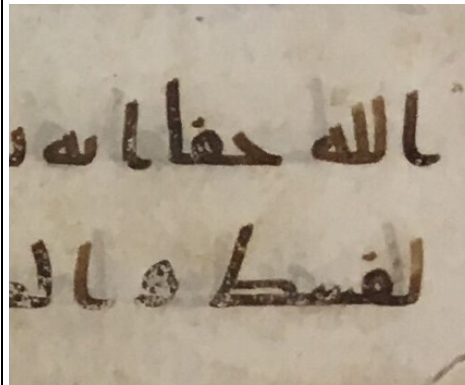 الله حقا انه
لقسط وا